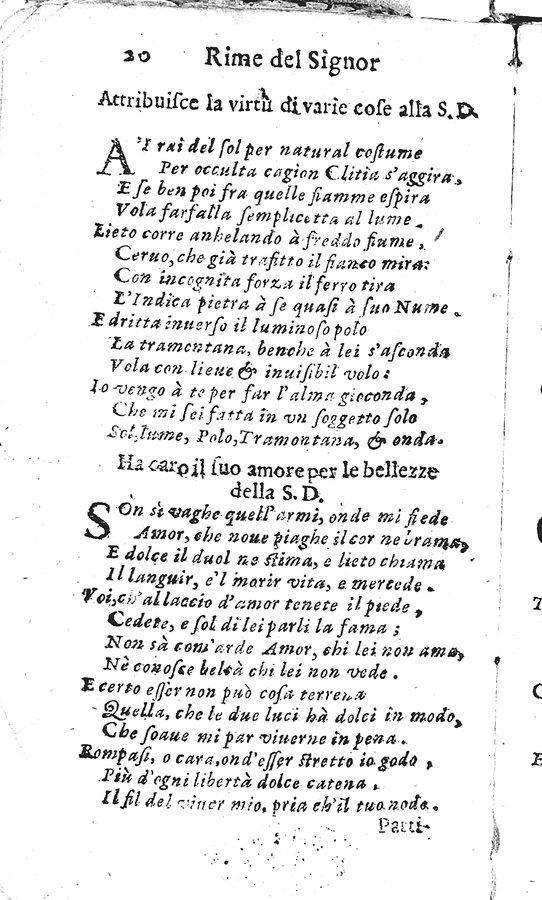 20 Rime del Signor
Attribuisce la virtù di varie cose alla S. D.
A'I rai del sol per natural costume
Per occulta cagion Clitia s'aggira,
E se ben poi fra quelle fiamme espira
Vola farfalla semplicetta al lume.
Lieto corre anhelando à freddo fiume,
Ceruo, che già trafitto il fianco mira:
Con incognita forza il ferro tira
L'Indica pietra à se quasi à suo Nume.
E dritta inuerso il luminoso polo
La tramontana, benche à lei s'asconda
Vola con lieue & inuisibil volo:
Io vengo à te per far l'alma gioconda,
Che mi sei fatta in vn soggetto solo
Sol, lume, Polo, Tramontana, & onda.
Ha caro il suo amore per le bellezze
della S. D.
SOn sì vaghe quell'armi, onde mi fiede
Amor, che noue piaghe il cor ne brama,
E dolce il duol ne stima, e lieto chiama
Il languir, e'l morir vita, e mercede.
Voi, ch'al laccio d'amor tenete il piede,
Cedete, e sol di lei parli la fama;
Non sà com'arde Amor, chi lei non ama,
Nè conosce beltà chi lei non vede.
E certo esser non può cosa terrena
Quella, che le due luci hà dolci in modo,
Che soaue mi par viuerne in pena.
Rompasi, o cara, ond'esser stretto io godo,
Più d'ogni libertà dolce catena,
Il fil del viuer mio, pria ch'il tuo nodo.
Parti-